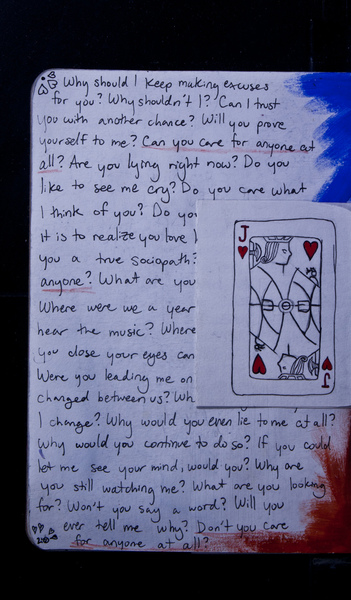 Why should I keep making excuses
for you? Why shouldn't I? Can I trust
you with another chance? Will you prove
yourself to me? Can you care for anyone at
all? Are you lying right now? Do you
like to see me cry? Do you care what
I think of you? Do you
it is to realize you love
you a true sociopath?
anyone? What are you
Where were we a year
hear the music? Where
you close your eyes can
Were you leading me on
changed between us? Wh
I change? Why would you even lie to me at all?
Why would you continue to do so? If you could
let me see your mind, would you? Why are
you still watching me? What are you looking
for? Won't you say a word? Will you
ever tell me why? Don't you care
for anyone at all?
J
J